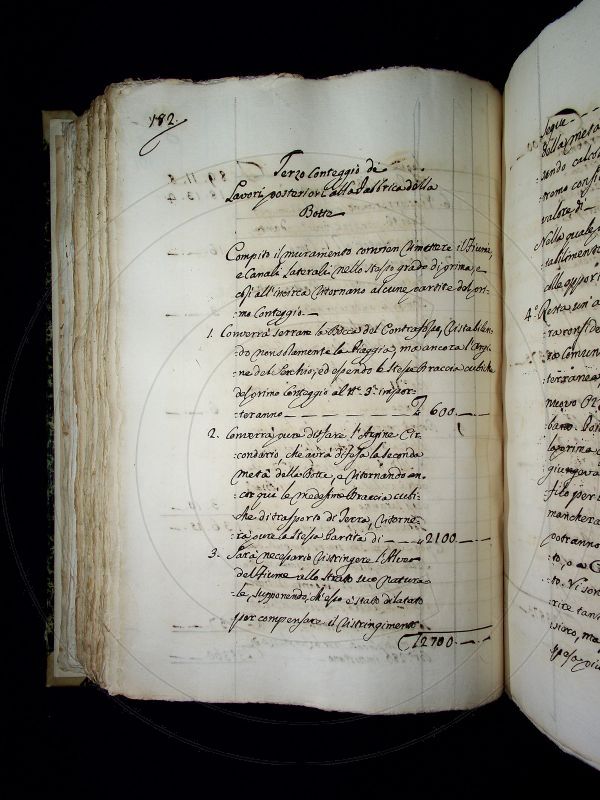 182.
Terzo Conteggio de
Lavori posteriori alla Fabbrica della
Botte
Compito il muramento convien rimettere il Fiume,
e Canali Laterali nello stesso grado di prima, e
così all'incirca ritornano alcune partite del pri-
mo Conteggio. —
1. Converrà serrare la Bocca del Contrafosso, ristabilen-
do non solamente la Piaggia, ma ancora l'Argi-
ne del Serchio; ed essendo le stesse Braccia cubiche
del primo Conteggio al N.º 3.º impor-
:teranno — 600. —
2. Converrà pure disfare l'Argine Cir-
:condario, che avrà difesa la seconda
metà della Botte, e ritornando an-
:cor qui le medesime Braccia cubi-
:che di trasporto di Terra, ritorne-
:rà pure la stessa Partita di — 2100. —
3. Sarà necessario ristringere l'Alveo
del Fiume allo stato suo natura-
:le, supponendo, ch'esso è stato dilatato
per compensare il ristringimento
2700 —
Segue
della metà
valore di —
Nella quale
4.º Resta un'a
mancherà
potranno